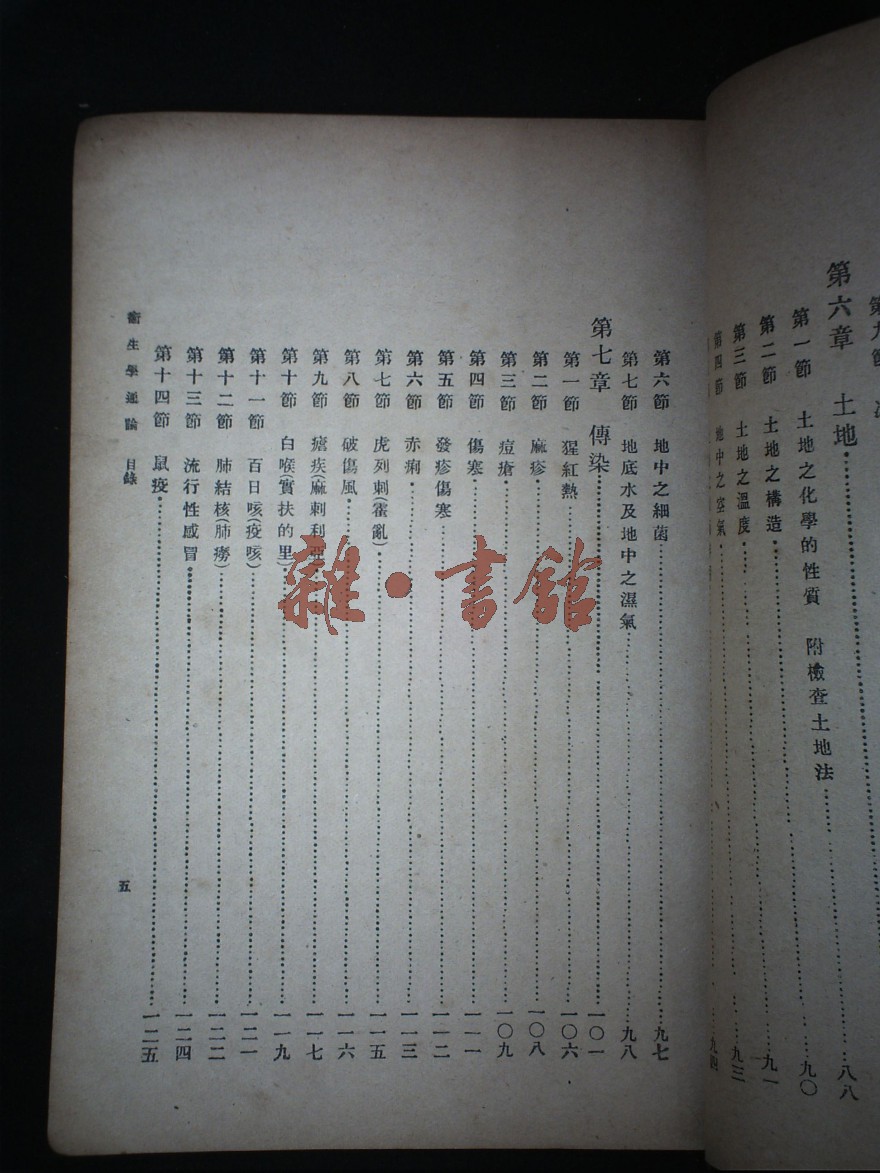 第六章 土地……八八
第一節 土地之化學的性質 附檢查土地法……九〇
第二節 土地之構造……九一
第三節 土地之溫度……九三
第四節 地中之空氣……九四
第六節 地中之細菌……九七
第七節 地底水及地中之濕氣……九八
第七章 傳染……一〇一
第一節 猩紅熱……一〇六
第二節 麻疹……一〇八
第三節 痘瘡……一〇九
第四節 傷寒……一一一
第五節 發疹傷寒……一一二
第六節 赤痢……一一三
第七節 虎列刺(霍亂)……一一五
第八節 破傷風……一一六
第九節 瘧疾(麻刺利亞)……一一七
第十節 白喉(實扶的里)……一一九
第十一節 百日咳(疫咳)……一二一
第十二節 肺結核(肺癆)……一二二
第十三節 流行性感冒……一二四
第十四節 鼠疫……一二五
衞生學通論 目錄
五
雜·書館